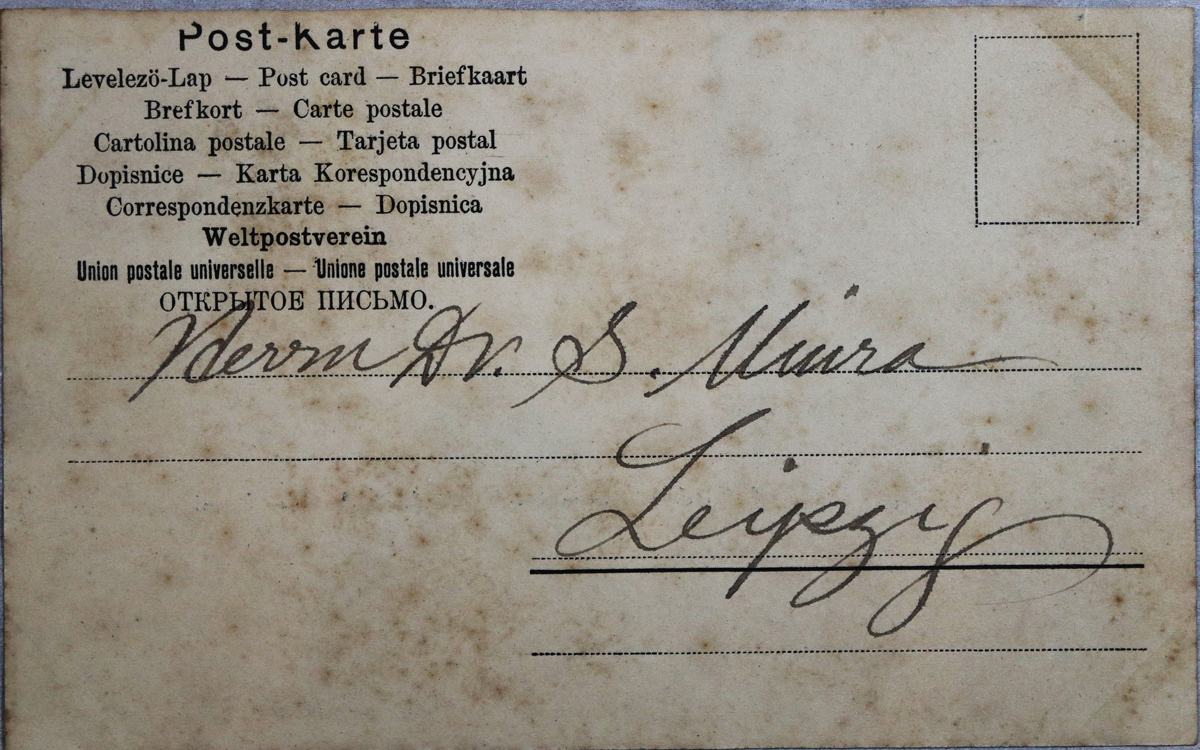 Post-Karte
Levelezö-Lap — Post card — Briefkaart
Brefkort — Carte postale
Cartolina postale — Tarjeta postal
Dopisnice — Karta Korespondencyjna
Correspondenzkarte — Dopisnica
Weltpostverein
Union postale universelle — Unione postale universale
ОТКРЫТОЕ ПИСЬМО.
Herrn Dr. S. Miura
Leipzig